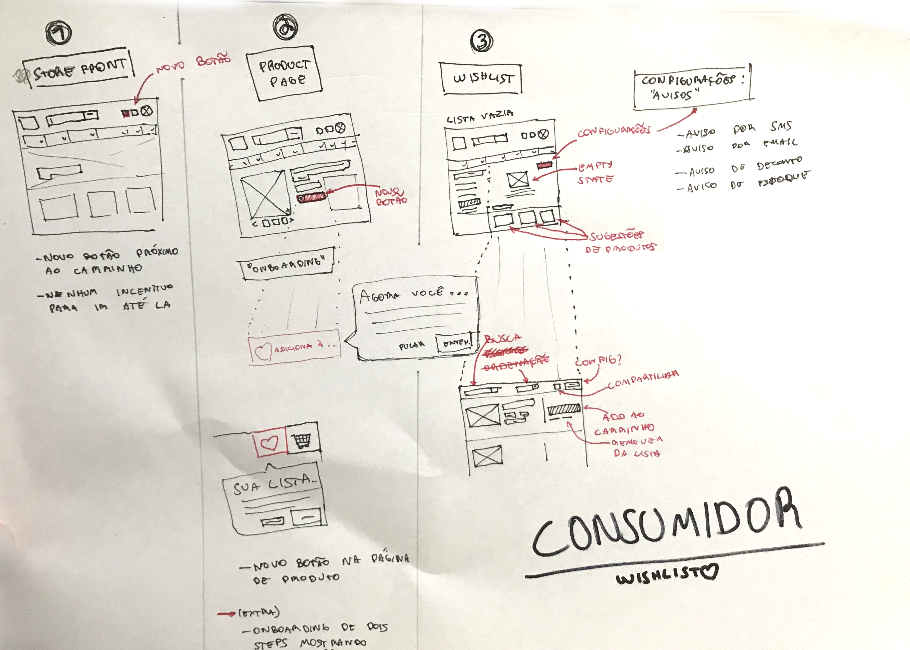 1
STORE FRONT
NOVO BOTÃO
- NOVO BOTÃO PRÓXIMO
AO CARRINHO
- NENHUM INCENTIVO
PARA IR ATÉ LA
2
PRODUCT
PAGE
NOVO
BOTÃO
"ONBOARDING"
AGORA VOCÊ...
PULAR
ADICIONA À..
SUA LISTA..
- NOVO BOTÃO NA PÁGINA
DE PRODUTO
→ (EXTRA)
- ONBOARDING DE DOIS
STEPS MOSTRANDO
3
WISHLIST
LISTA VAZIA
CONFIGURAÇÕES
EMPTY
STATE
SUGESTÕES
DE PRODUTOS
CONFIGURAÇÕES:
"AVISOS"
- AVISO POR SMS
- AVISO POR EMAIL
- AVISO DE DESCONTO
- AVISO DE ESTOQUE
BUSCA
ORDENAÇÃO
CONFIG?
COMPARTILHAR
ADD AO
CARRINHO
REMOVER
DA LISTA
CONSUMIDOR
WISHLIST♡